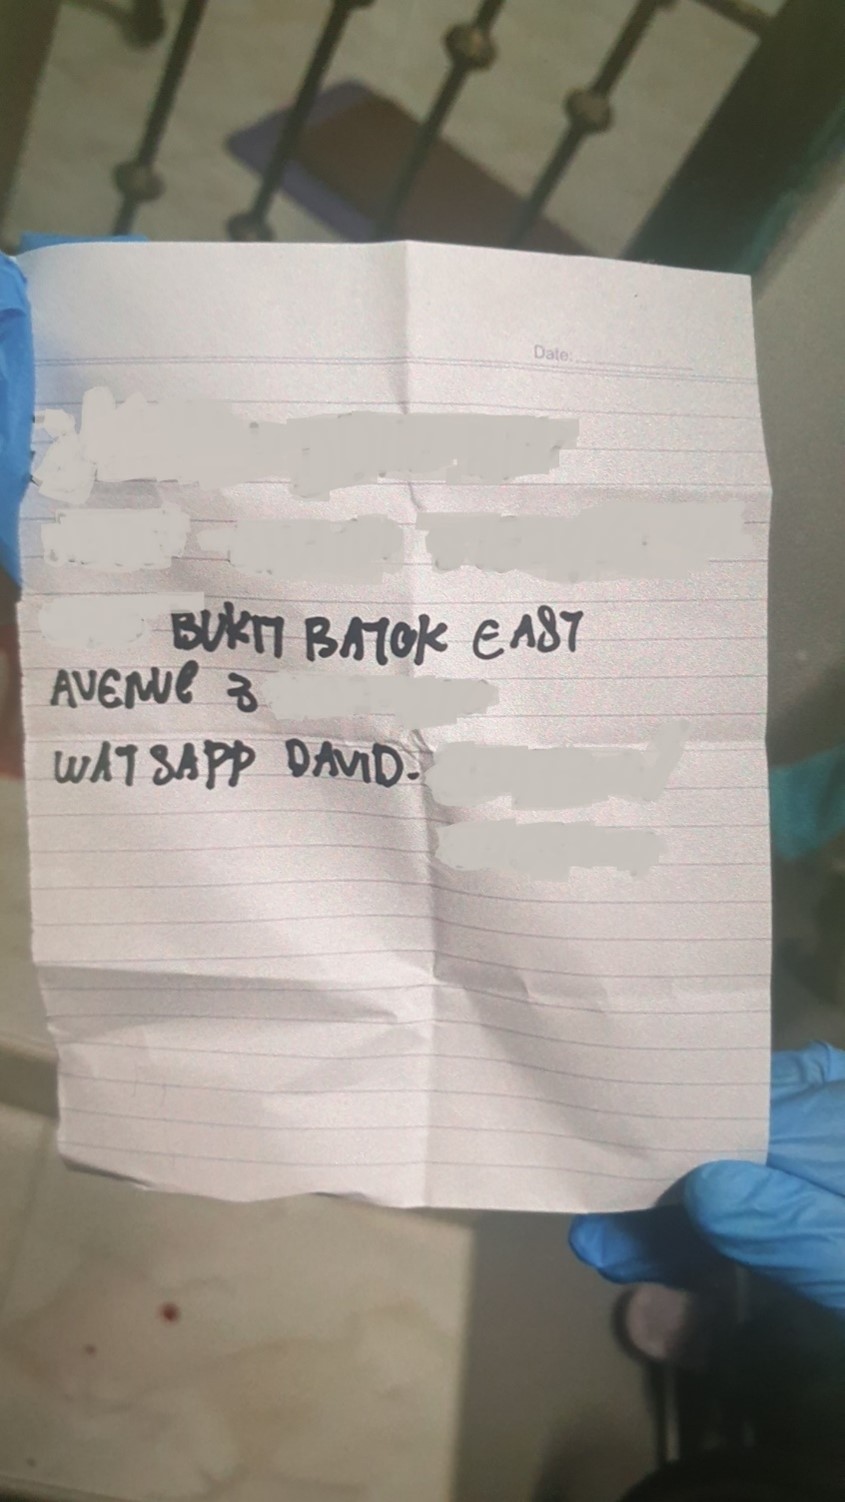 Date:
BUKIT BATOK EAST
AVENUE 3
WATSAPP DAVID.